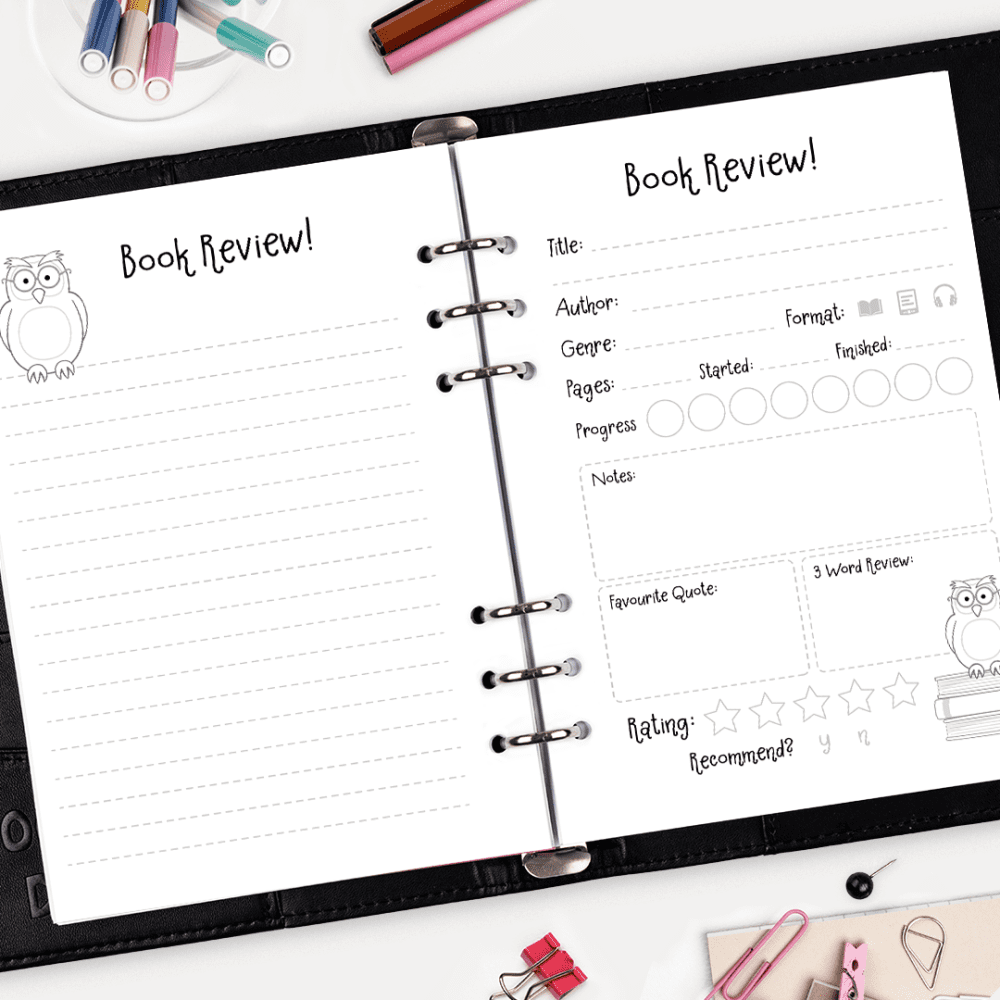 Book Review!
Book Review!
Title:
Author:
Format:
Genre:
Pages: Started: Finished:
Progress
Notes:
Favourite Quote: 3 Word Review:
Rating:
Recommend? y n
O
D